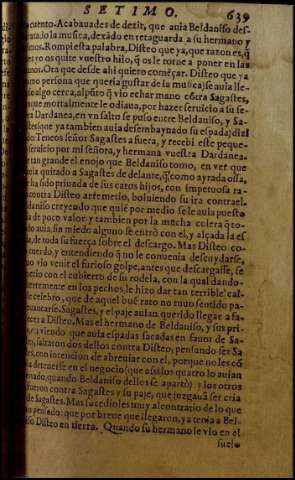 SETIMO. 639
cuento. Acabauades de dezir, que auia Beldaniso des-
la musica, dexado en retaguarda a su hermano y
Rompi esta palabra, Disteo que ya, que razon es, q̃
yo os quite vuestro hilo, q̃ os le torne a poner en las
Ora que desde ahi quiero começar. Disteo que ya
persona que queria gustar de la musica, se auia lle-
algo cerca, al pũto q̃ vio echar mano cõtra Sagastes,
mortalmente le odiaua, por hazer seruicio a su se-
Dardanea, en vn salto se puso entre Beldaniso, y Sa-
que ya tambien auia desembaynado su espada, diziẽ
Teneos señor Sagastes a fuera, y recebi este peque-
seruicio por mi señora, y hermana vuestra Dardanea.
tan grande el enojo que Beldaniso tomo, en ver que
quitado a Sagastes de delante, q̃ como ayrada ossa,
ha sido priuada de sus caros hijos, con imperuosa ra-
contra Disteo arremetio, boluiendo su ira contra el.
creyedo que quié por medio se le auia puesto
de poco valor: y tambien por la mucha colera q̃ to-
auia, sin miedo alguno se entrò con el, y alçada la es
de toda su fuerça sobre el descargo. Mas Disteo co-
y entendiendo q̃ no le conuenia descuydarse,
vio venir el furioso golpe, antes que descargasse, se
con el cubierto de su rodela, con la qual dando-
en los pechos, le hizo dar tan terrible cal-
celebro, que de aquel bué rato no tuuo sentido pa-
Sagastes, y el paje auian querido llegar a fa-
a Disteo. Mas el hermano de Beldaniso, y sus pri-
viendo que auia espadas sacadas en fauor de Sa-
saltaron dos dellos contra Disteo, pensando ser Sa-
con intencion de abreuiar con el, porque no les cõ
detenerse en el negocio (que assi los quatro lo auian
quando Beldaniso dellos se apartò) y los otros
fueron contra Sagastes y su paje, que juzgauã ser cria
de Sagastes. Mas sucediolesmuy al contrario de lo que
pensado: que por breue que llegaron, ya tenia a Bel-
Disteo en tierra. Quando su hermano le vio en el
suelo